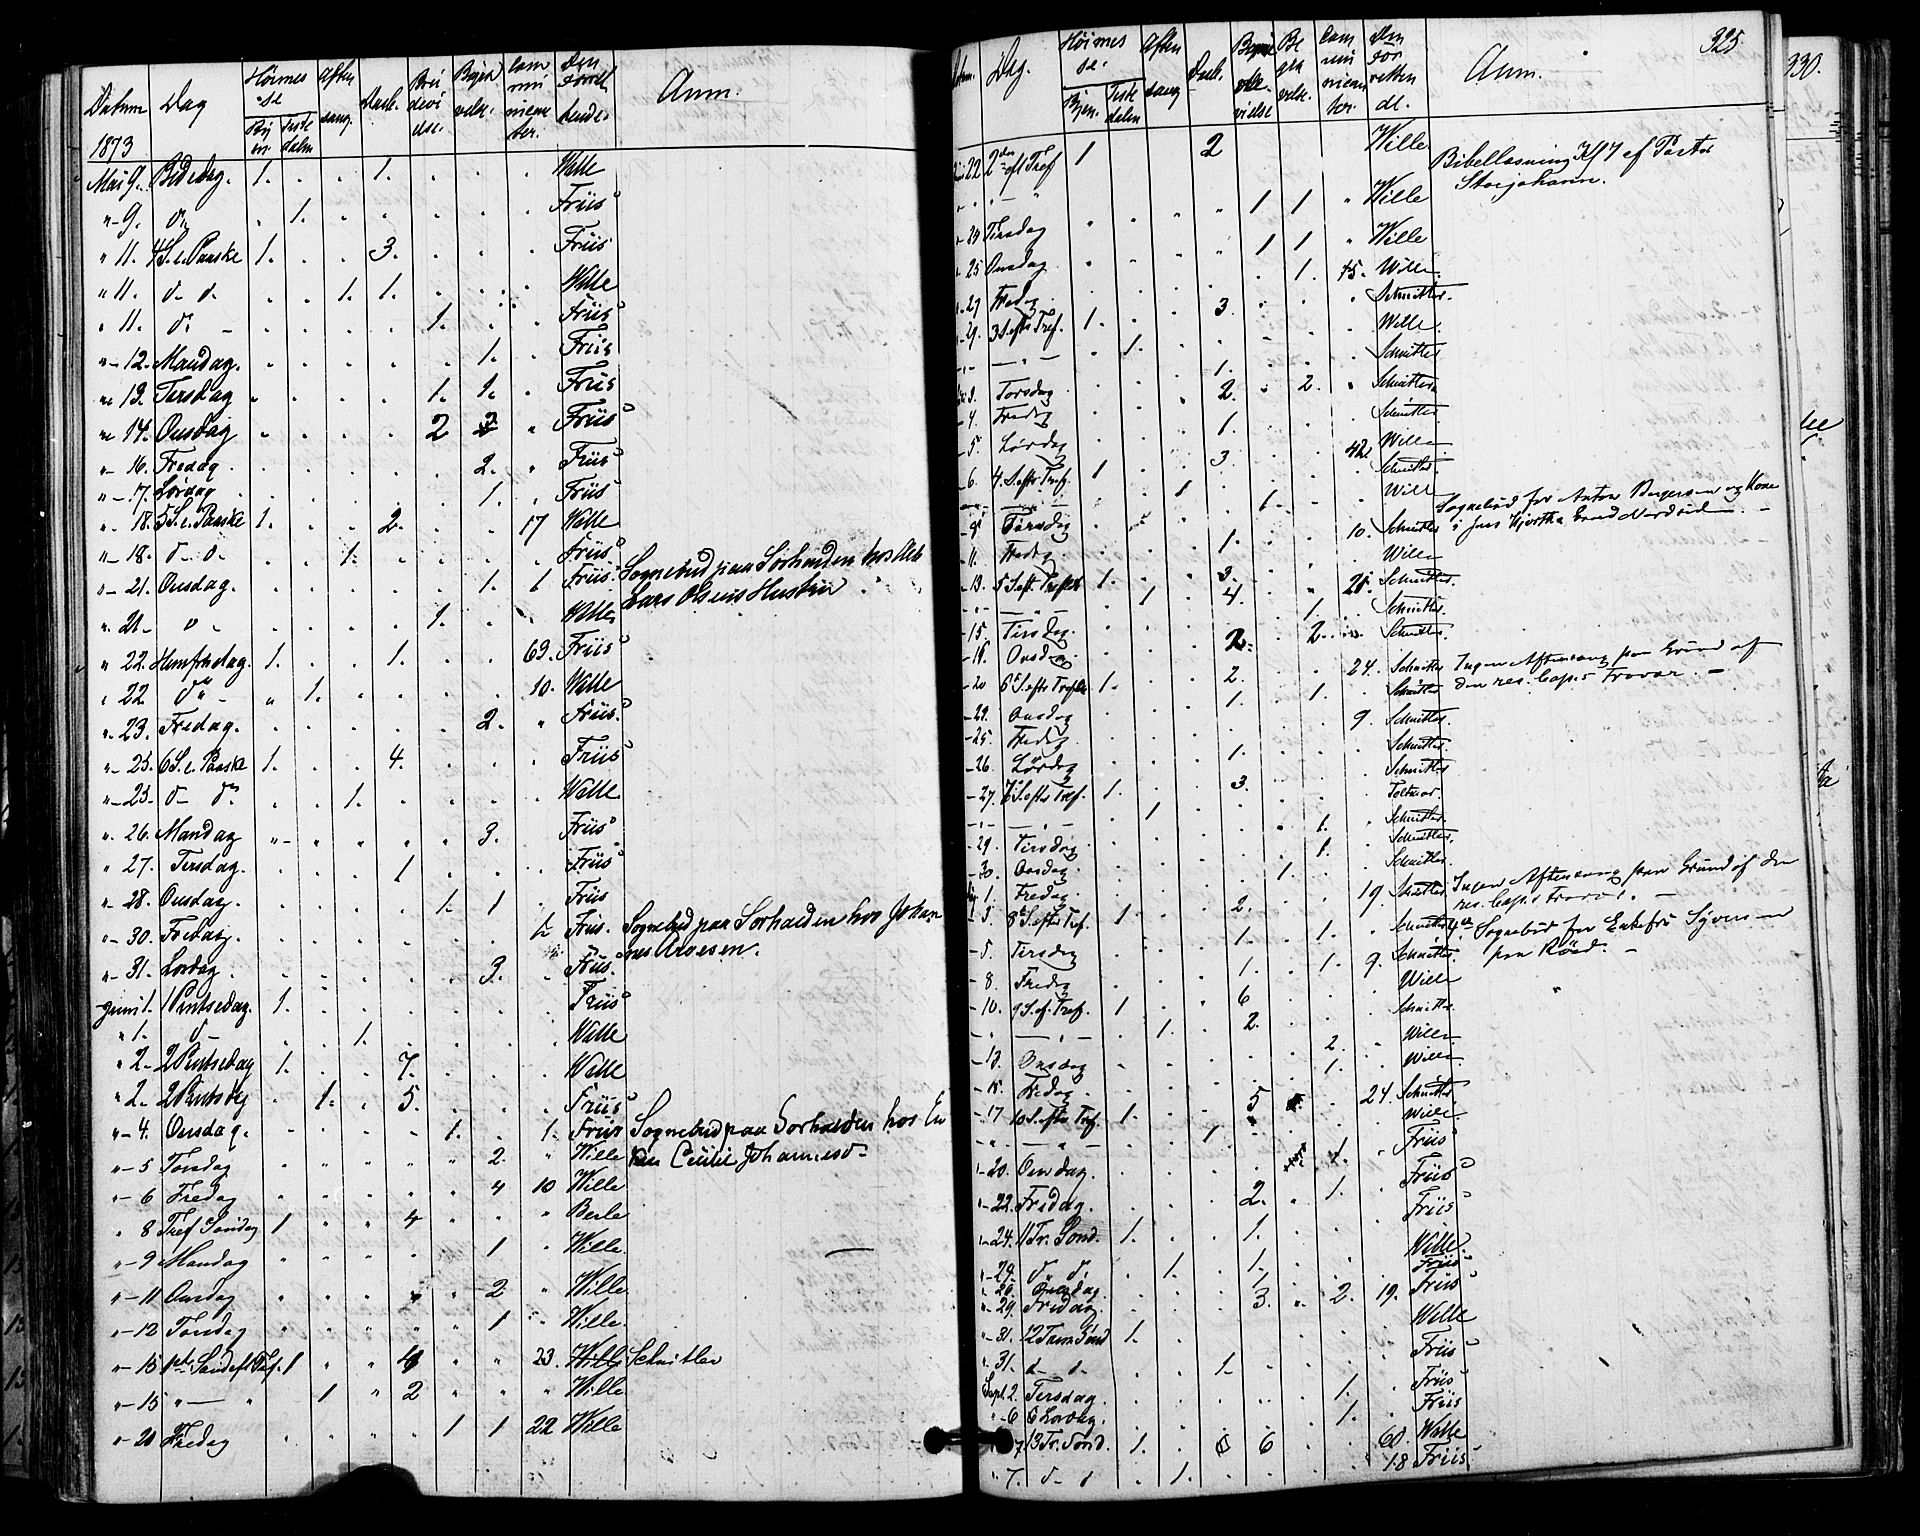 Datum Dag Høimesse Aftensang. Daab. Brudevielse. Begravelse. Communicanter. Den Forrettende. Anm.
1873 Byen Tistedalen
Mai 9. Bededag. 1. . . 1. . . . Wille
"-9. do . 1. . . . . . Friis
" 11. 4 S. e. Paaske 1. . . 3. . . . Friis
" 11. d- d. . . 1. 1. . . . Wille
" 11. do - . . . . 1. . . Friis
"-12. Mandag. . . . . . 1. . Friis
" 13. Tirsdag . . . . 1. 1. . Friis
" 14. Onsdag . . . . 2 2 " Friis
"- 16. Fredag . . . . . . 2. " Friis
"-17. Lørdag . . . . . 1. . Friis
"- 18. 5 S. e. Paaske 1. . . 2. . . 17 Wille
"-18. d- d. . . 1. . . . . Friis
"-21. Onsdag. . . . . . 1. 1 Friis Sognebud paa Sørhalden hos
Lars Olsens Hustru
". 21- " - . . . . 1. . . Wille
" 22. Himfrtsdag. 1. . . 1. . . 69. Friis
" 22 do - " 1. . . . . 10. Wille
". 23. Fredag. . . . . . 2. " Friis.
"- 25. 6 S. e. Paaske 1. . . 4. . . . Friis
"-25- d- do . . 1. . . . . Wille
"- 26. Mandag . . . . . 3. . Friis
" 27. Tirsdag. . . . 1 . . . Friis
"- 28. Onsdag, . . . . 1. 1 . Friis
"-30. Fredag, . . . . . . 1- Friis. Sognebud paa Sørhalden hos Johan
nes Aroesen.
"-31. Lørdag . . . . . . 3. . Friis.
Juni 1. 1 Pintsedag. 1. . . . . . . Friis
" 1. d- . . 1. . . . . Wille
" 2- 2 Pintsedag 1. . . 7. . . . Wille
" 2. 2 Pintsdag . 1. . 5. . . . Friis
"- 4. Onsdag. . . . . 1. . 1. Friis Sognebud paa Sørhalden hos En
ken Cecilie Johannesd-
"- 5 Torsdag " " " " " 2. " Wille
"- 6 Fredag " " " " " 4 10 Wille
" 8 Tref Søndag 1 " " 4 " " " Berle
"- 9 Mandag " " " " " 1 " Wille.
"- 11 Onsdag " " " " " 2 " Wille
"-12 Torsdag " " " " " 1 " Wille.
"- 15 1ste Sønd eft Tref. 1 " " 4 " " 23. Wille Schnitler
"- 15 "-- " 1 " 2 " " " Wille
"- 20 Fredag . . . . 1 1 22 Wille
325.
330.
Datum. Dag. Høimesse. Aftensang Daab. Begravelse Communicanter. Den Forrettende. Anm.
Byen. Tistedalen
Juni 22 2den eft Tref 1 2 Wille Bibellæsning Kl 7 af Pastor
Storjohann.
" - " . . . . 1 1 " Wille
"- 24 Tirsdag . . . . 1 1 " Wille
"- 25 Onsdag . . . . . 1. 45. Wille
"- 27 Fredag . . . 3. . . " Schnitler.
"- 29. 3 S. efts Tref. 1. . . . . . Wille.
- " - . 1. . 1. . . . Schnitler
Juli 3. Torsdag . . . 2. " 2. " Schnitler
- 4. Fredag . . . 1. . . . Schnitler.
- 5. Lørdag . . . 3. . . 42 Wille
- 6. 4. S. efts Tref. 1 . . . . . . Schnitler.
- " - . . 1 . 1. . . Wille Sognebud for Anton Bergersen og Kone
i Jens Hjorths Gaard Nordsiden. -
- 9 Tirsdag . . . 1. . . 10. Schnitler
- 11. Fredag . . . 3. . . . Wille
- 13. 5 S. eft. Trefts 1. . . 4. . " 28. Schnitler.
" - " - . 1 . . . 1. . Schnitler.
-15. Tirsdag. . . . 2. . 2. . Schnitler.
- 16. Onsdag . . . 2. . . 24. Schnitler Ingen Aftensang paa Grund af
den res. Cap.s Fravær. -
-20 6 S. efts Trefts 1. . . 1. . 1. . Schnitler
-22. Onsdag . . . . . . 9. Schnitler.
-25. Fredag . . . 1. . . . Schnitler
-26. Lørdag . . . 3. . . . Schnitler
-27. 7 S. efts Tref. 1. . . . . .
- " - . 1 . . . 1. . Schnitler.
-29. Tirsdag . . . . . 1. . Schnitler.
-30. Onsdag . . . . 1 . . Schnitler.
Aug 1. Fredag . . . 2. . . 19. Schnitler Ingen Aftensang paa Grund af den
res. Cap.s Fravær. -
- 3. 8 S. efts Tref. 1. . . 1. . 1. . Schnitler Sognebud for Enkefru Syversen
paa Rød. -
-5. Tirsdag . . . 1. . 1. 9. Schnitler
-8. Fredag . . . 6 . . . Wille
-10. 9 S. ef. Tref. 1 . . 2. . . . Schnitler
" - " - . 1. . . . 2. " Wille
-13. Onsdag . . . . . 1. . Wille
-15. Fredag . . . 5 . . 24. Schnitler
-17 10 S. efts Tref. 1. . . . . . . Wille
" - " - . . 1. . . 1. . Friis
"-20. Onsdag. . . . 2. " 1. . Friis
"-22. Fredag. . . . 1. . . . Friis
"-24. 11 Tr. Sønd. 1. . . 1. . . . Wille.
"-24. d. d. . 1. . . . . . Friis
"-26. Onsdag. . . . 3. " 2. 19. Friis
"-29. Fredag. . . . . . . . Wille
"-31. 12 Tr. Sønd 1. . . . . . . Friis
". 31. d- d. . . 1. . . . . Friis
Sept. 2. Tirsdag. . . . . . 1. . Friis
"-6 Lørdag. . . . . . 1. .
"7 13 Tr. Sønd. 1. . 6 6 . . 60. Wille
" 7. d- d . 1. . . . . 18 Friis